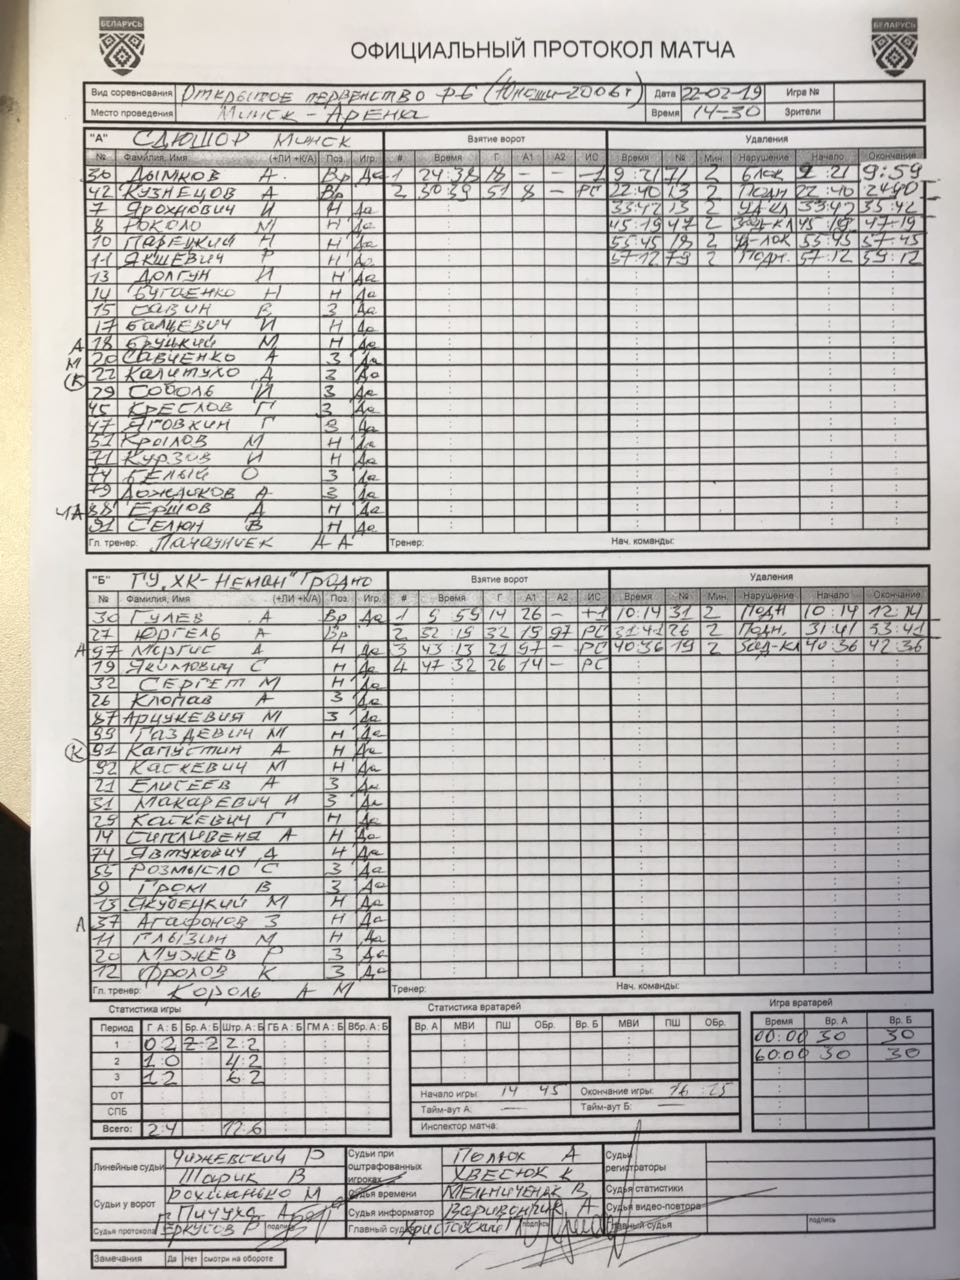 БЕЛАРУСЬ БЕЛАРУСЬ
ОФИЦИАЛЬНЫЙ ПРОТОКОЛ МАТЧА
Вид соревнования Открытое первенство РБ (Юноши-2006г) Дата 22-02-19 Игра №
Место проведения Минск-Арена Время 14-30 Зрители
"А" СДЮШОР Минск Взятие ворот Удаления
№ Фамилия, Имя (+ЛИ +К/А) Поз Игр. # Время Г А1 А2 ИС Время № Мин Нарушение Начало Окончание
30 Дымков А. Вр Да 1 24:38 18 – – -1 9:21 71 2 блок 9:21 9:59
42 Кузнецов А Вр 2 50:39 51 8 – РС 22:40 13 2 Подн 22:40 24:40
7 Ярохнович И Н Да 33:42 13 2 33:42 35:42
8 Роколо М Н Да 45:19 47 2 45:19 47-19
10 Парецкий Н Н Да 55:45 18 2 55:45 57-45
11 Якшевич Р Н Да 57:12 79 2 Подн. 57:12 59:12
13 Долгун И Н Да
14 Бугаенко Н Н Да
15 Савин В З Да
17 Балцевич И Н Да
А 18 Бруцкий М Н Да
М 20 Савченко А З Да
(К) 22 Калитухо Д З Да
29 Соболь И З Да
45 Креслов Г З Да
47 Яговкин Г З Да
51 Крылов М Н Да
71 Курзов И Н Да
74 Белый О З Да
79 Дождиков А З Да
88 Ершов Д Н Да
91 Селюн В Н Да
Гл. тренер: А А Тренер: Нач. команды:
"Б" ГУ "ХК-Неман" Гродно Взятие ворот Удаления
№ Фамилия, Имя (+ЛИ +К/А) Поз Игр. # Время Г А1 А2 ИС Время № Мин. Нарушение Начало Окончание
30 Гулев А Вр Да 1 9 59 14 26 – +1 10:14 31 2 Подн 10:14 12:14
27 Юргель А Вр 2 32 15 97 РС 31:41 26 2 Подн. 31:41 33:41
А 97 Мергис Д Н Да 3 43:13 21 97 – РС 40:36 19 2 зад-кл 40:36 42:36
19 Якимович С Н Да 4 47 32 26 14 – РС
32 Сергет М Н Да
26 Клопав А З Да
87 Арцукевия М З Да
99 Газдевич М Н Да
(К) 91 Капустин А Н Да
92 Каскевич М Н Да
21 Елисеев А З Да
31 Макаревич И З Да
25 Каскевич Г Н Да
14 Сипливеня А Н Да
74 Явтухович Д Н Да
55 Розмысло С З Да
9 Гром В З Да
13 Якубецкий М Н Да
А 37 Агафонов З Н Да
11 Глызин М Н Да
20 Мужев Р З Да
12 Фролов К З Да
Гл. тренер: Король А М Тренер: Нач. команды:
Статистика игры Статистика вратарей Игра вратарей
Период Г А : Б Бр. А : Б Штр. А : Б ГБ А : Б ГМ А : Б Вбр. А : Б Вр. А МВИ ПШ ОБр. Вр. Б МВИ ПШ ОБр. Время Вр. А Вр. Б
1 0:2 2:2 2:2 00:00 30 30
2 1:0 4:2 60:00 30 30
3 1:2 6:2
ОТ Начало игры: 14 45 Окончание игры: 16:25
СПБ Тайм-аут А: — Тайм-аут Б: —
Всего: 2:4 12:6 Инспектор матча:
Линейные судьи Чижевский Р Судьи при оштрафованных игроках Полюх А Судьи регистраторы
Шарик В Хвесюк К
Судьи у ворот Рохманько М Судья времени Мельниченак В Судьи статистики
Пичуха А Судья информатор Вариванчик А Судьи видео-повтора
Судья протокола Еркусов Р подпись Главный судья Христовский Г подпись Главный судья подпись
Замечания Да Нет смотри на обороте